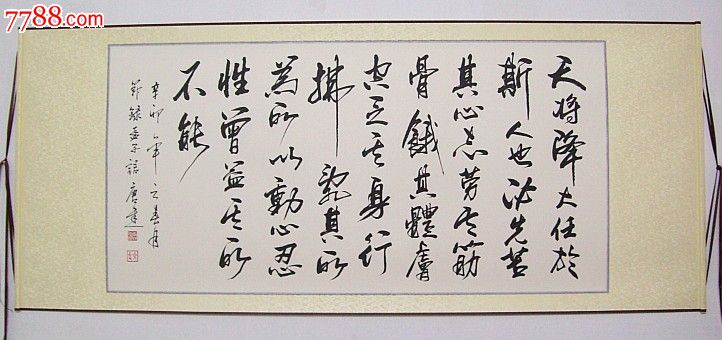 7788.com
天将降大任於
斯人也必先苦
其心志劳其筋
骨餓其體膚
空乏其身行
拂亂其所
為所以動心忍
性曾益其所
不能
辛卯年之春月
節錄孟子語唐